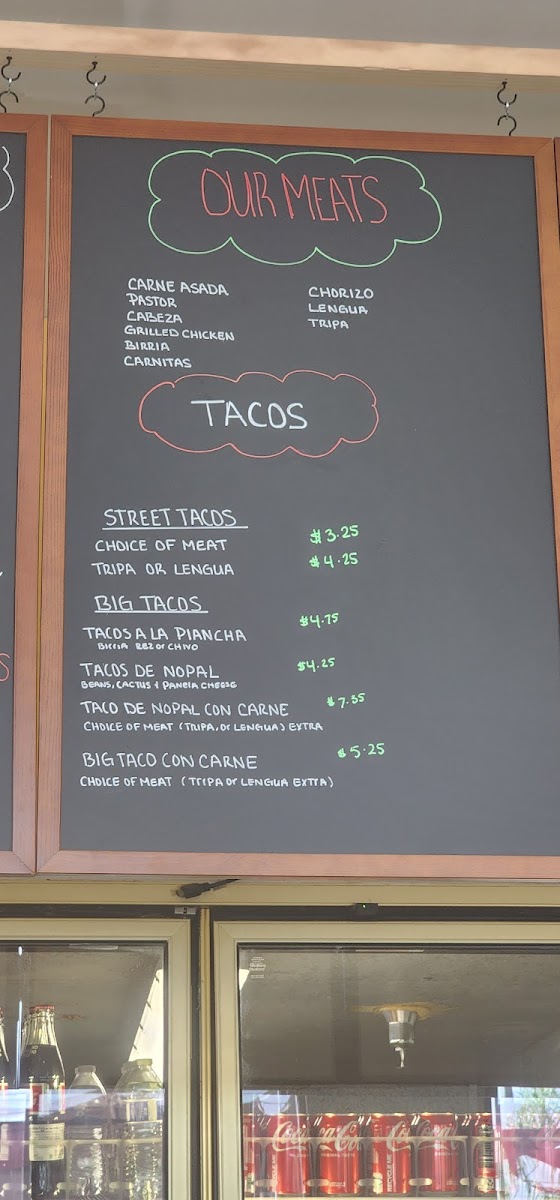 OUR MEATS
CARNE ASADA
PASTOR
CABEZA
GRILLED CHICKEN
BIRRIA
CARNITAS
CHORIZO
LENGUA
TRIPA
TACOS
STREET TACOS
CHOICE OF MEAT $3.25
TRIPA OR LENGUA $4.25
BIG TACOS
TACOS A LA PIANCHA $4.75
BIRRIA REZ OR CHIVO
TACOS DE NOPAL $4.25
BEANS, CACTUS & PANELA CHEESE
TACO DE NOPAL CON CARNE $7.35
CHOICE OF MEAT (TRIPA, Or LENGUA) EXTRA
BIG TACO CON CARNE $5.25
CHOICE OF MEAT (TriPA Or LENGUA EXTrA)
S
Coca-Cola